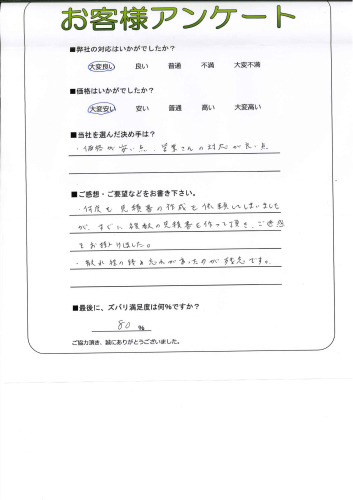 お客様アンケート
■弊社の対応はいかがでしたか？
大変良い 良い 普通 不満 大変不満
■価格はいかがでしたか？
大変安い 安い 普通 高い 大変高い
■当社を選んだ決め手は？
・価格が安い点、営業さんの対応が良い点
■ご感想・ご要望などをお書き下さい。
・何度も見積書の作成を依頼してしまいました
が、すぐに複数の見積書を作って頂き、ご迷惑
をお掛けしました。
・取れ
忘れがあったのが残念です。
■最後に、ズバリ満足度は何％ですか？
80 ％
ご協力頂き、誠にありがとうございました。